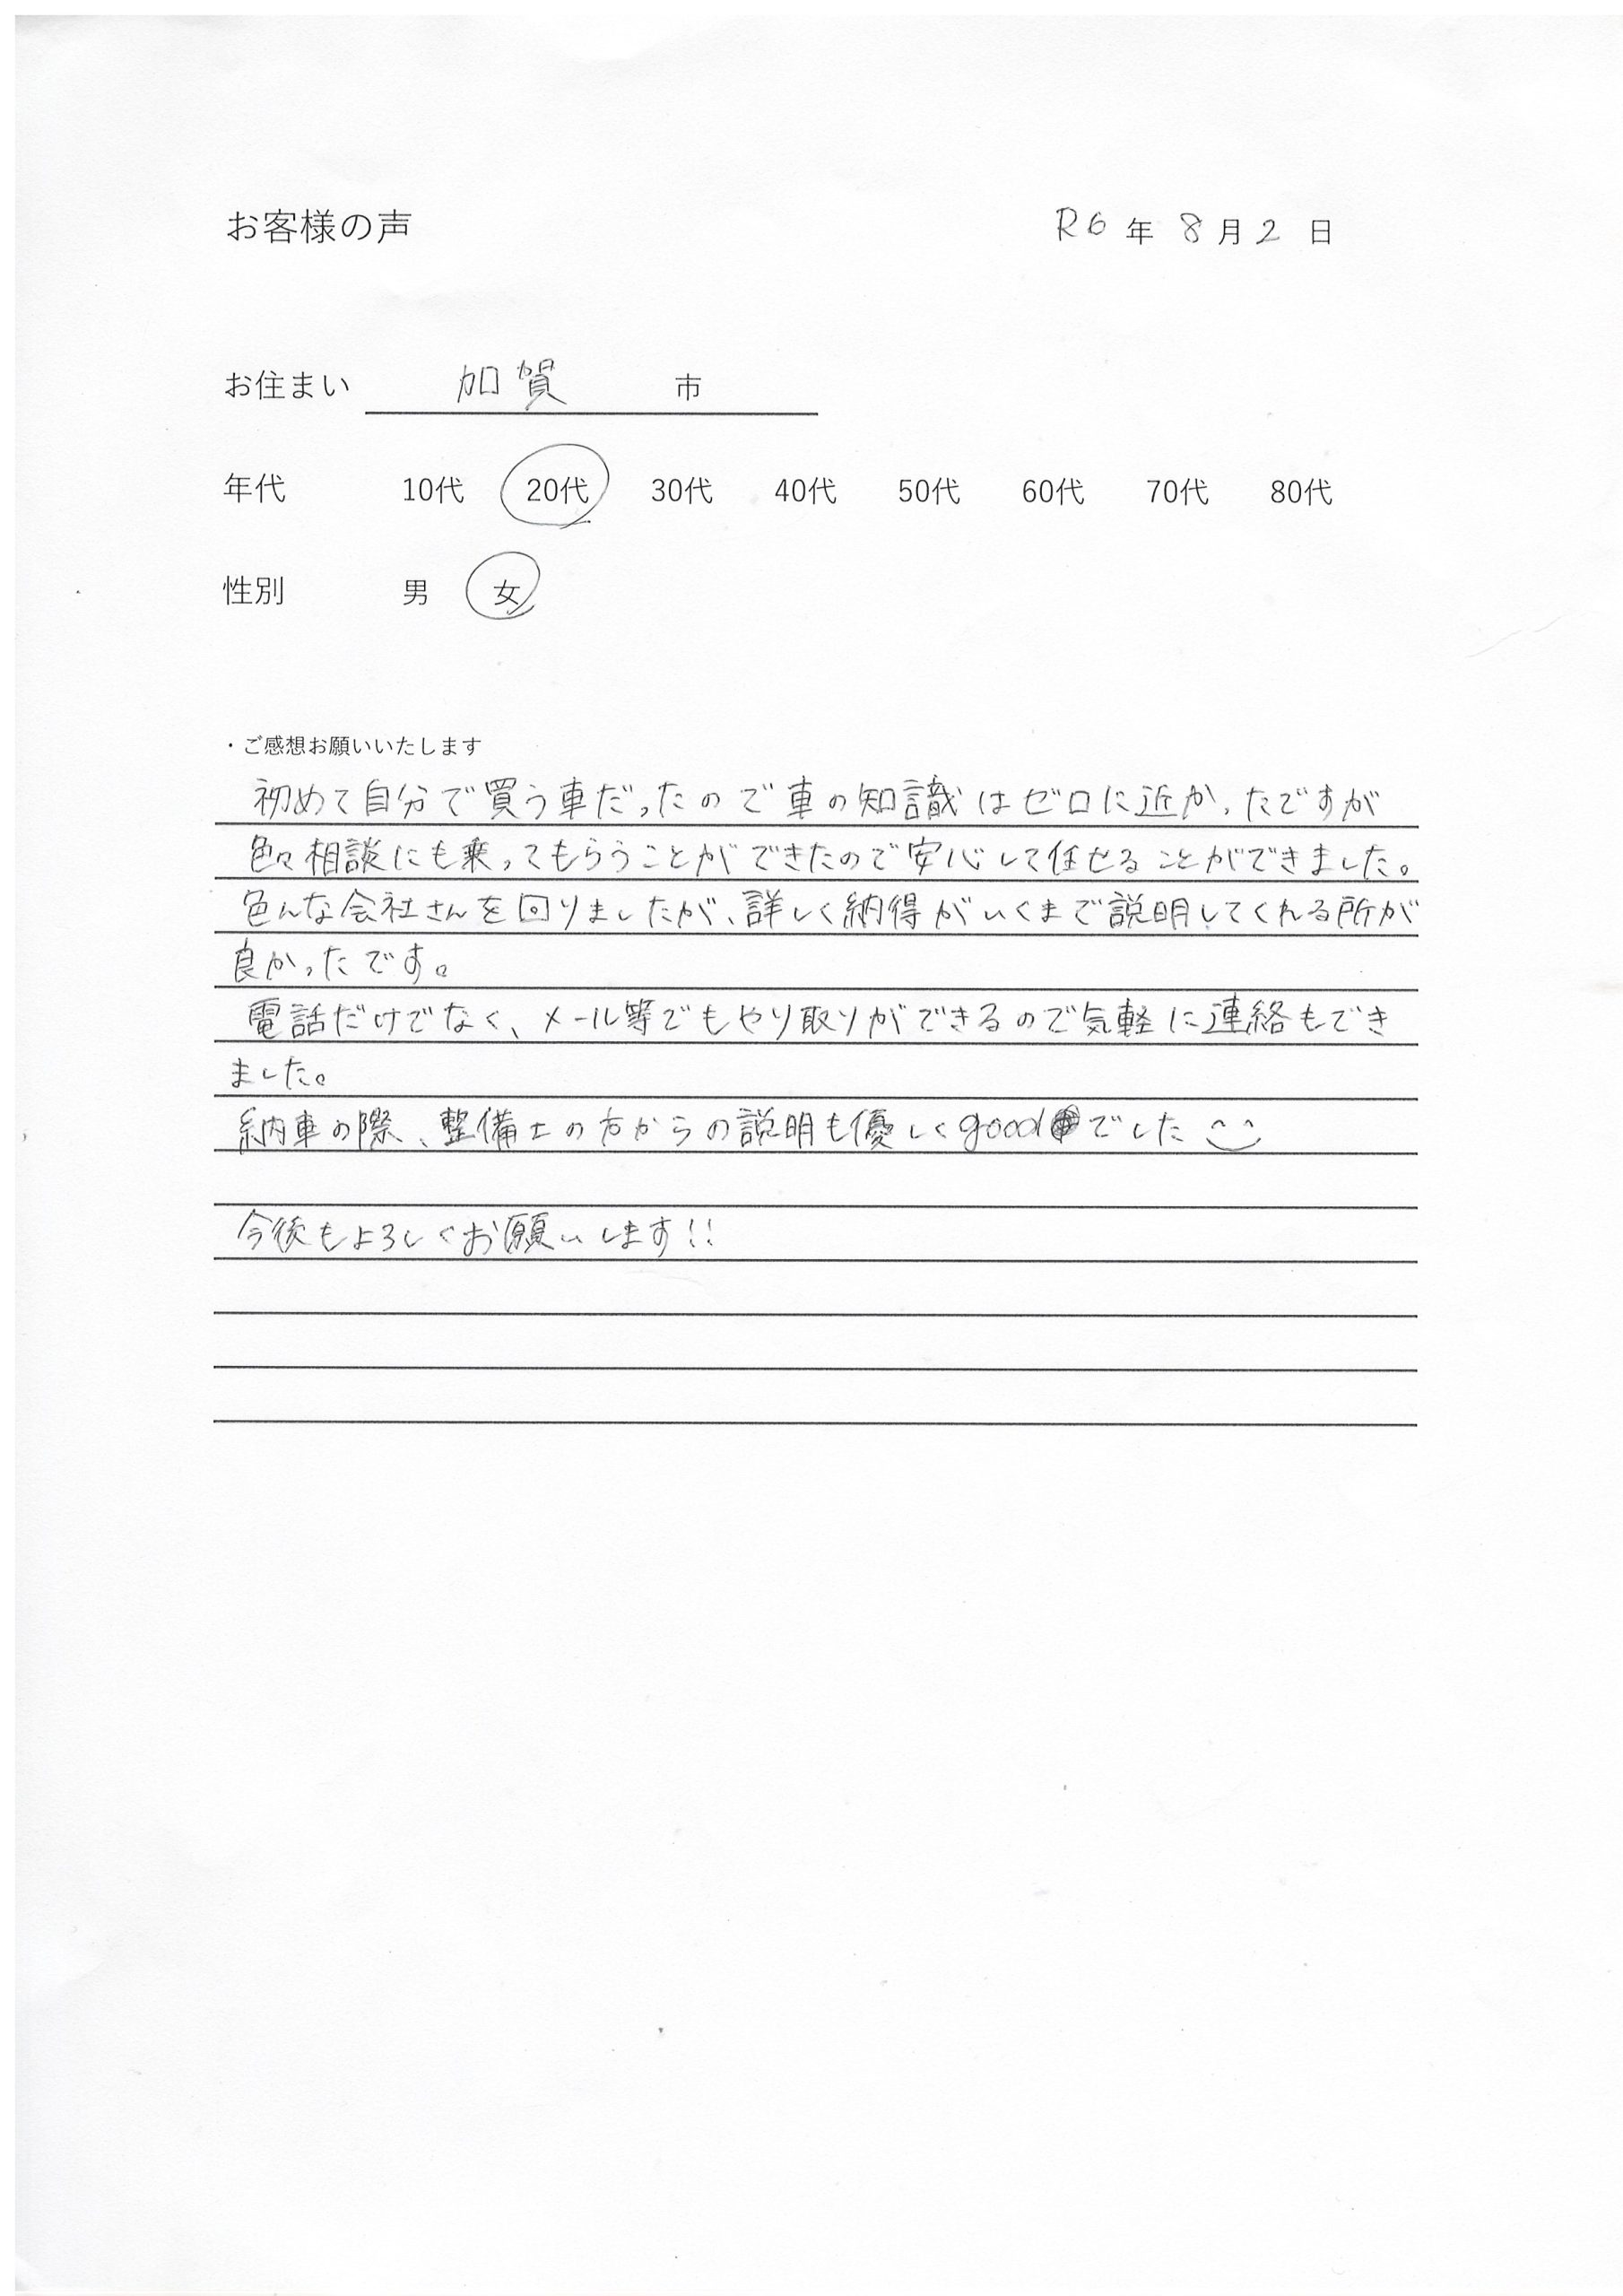 お客様の声
R6年 8月2日
お住まい 加賀 市
年代 10代 20代 30代 40代 50代 60代 70代 80代
性別 男 女
・ご感想お願いいたします
初めて自分で買う車だったので車の知識はゼロに近かったですが
色々相談にも乗ってもらうことができたので安心して任せることができました。
色んな会社さんを回りましたが、詳しく納得がいくまで説明してくれる所が
良かったです。
電話だけでなく、メール等でもやり取りができるので気軽に連絡もでき
ました。
納車の際、整備士の方からの説明も優しくgoodでした
今後もよろしくお願いします!!